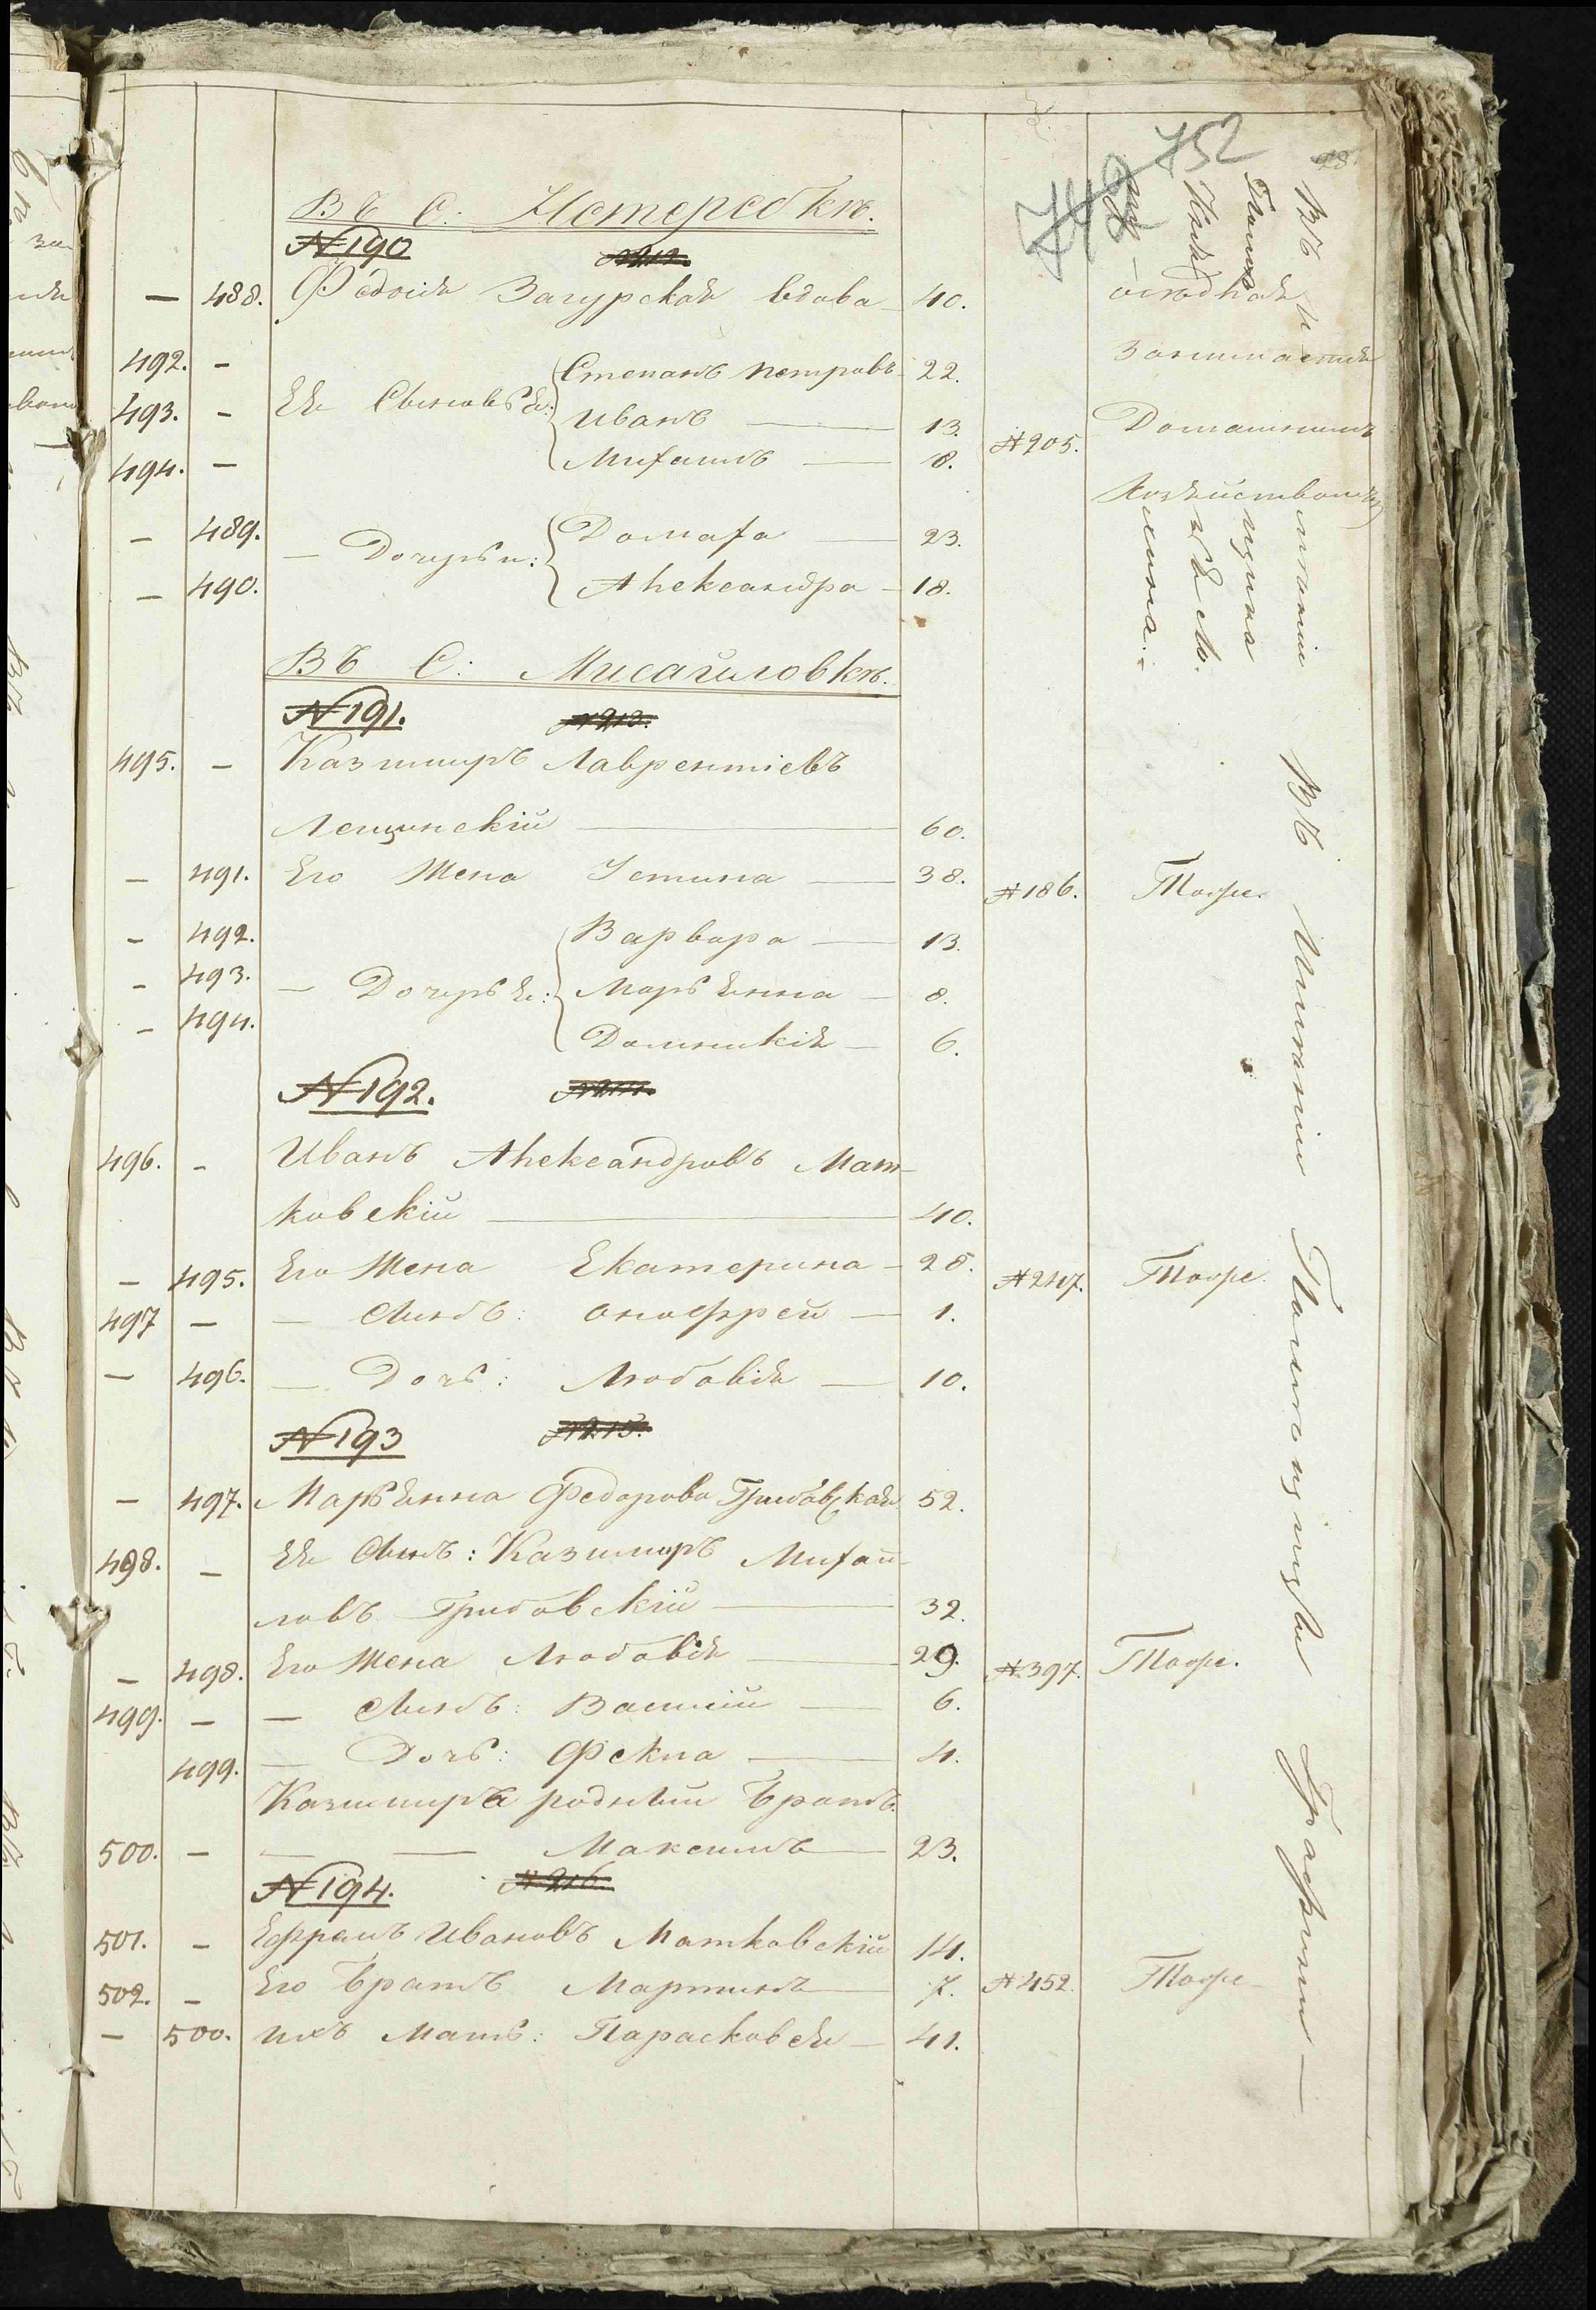 752
748
28
ВЪ С: Нетеребкѣ.
№190
№212.
— 488. Федосія Загурская вдова 40.
492. — Ея Сыновья: Степанъ Петровъ 22.
493. — Иванъ — 13.
494. — Михаилъ — 8.
№205.
осѣдлая
Занимается
Домашнимъ
Хозяйствомъ
— 489. — Дочери: Домаха — 23.
— 490. Александра — 18.
ВЪ С: Мисайловкѣ.
№191.
№213.
495. — Казимиръ Лаврентіевъ
Лещинскій — 60.
— 491. Его Жена Устина — 38. №186. Тоже.
— 492. Варвара — 13.
— 493. — Дочерья: Марьянна — 8.
— 494. Доминикія — 6.
№192.
№214.
496. — Иванъ Александровъ Мат-
ковскій — 40.
— 495. Его Жена Екатерина — 28. №247. Тоже.
497 — — Сынъ: Онофрей — 1.
— 496. — Дочь: Любовія — 10.
№193
№215.
— 497. Марьянна Федорова Грибовская 52.
498. — Ея Сынъ: Казимиръ Михай-
ловъ Грибовскій — 32.
— 498. Его Жена Любовія — 29. №397. Тоже.
499. — — Сынъ: Василій — 6.
499. — Дочь: Фекла — 4.
Казимира родный Братъ
500. — — — Максимъ — 23.
№194.
№216.
501. — Ефремъ Ивановъ Матковскій 14.
502. — Его Братъ Мартинъ — 7. №452. Тоже
— 500. Ихъ Мать: Парасковея — 41.
ВЪ Имѣніи